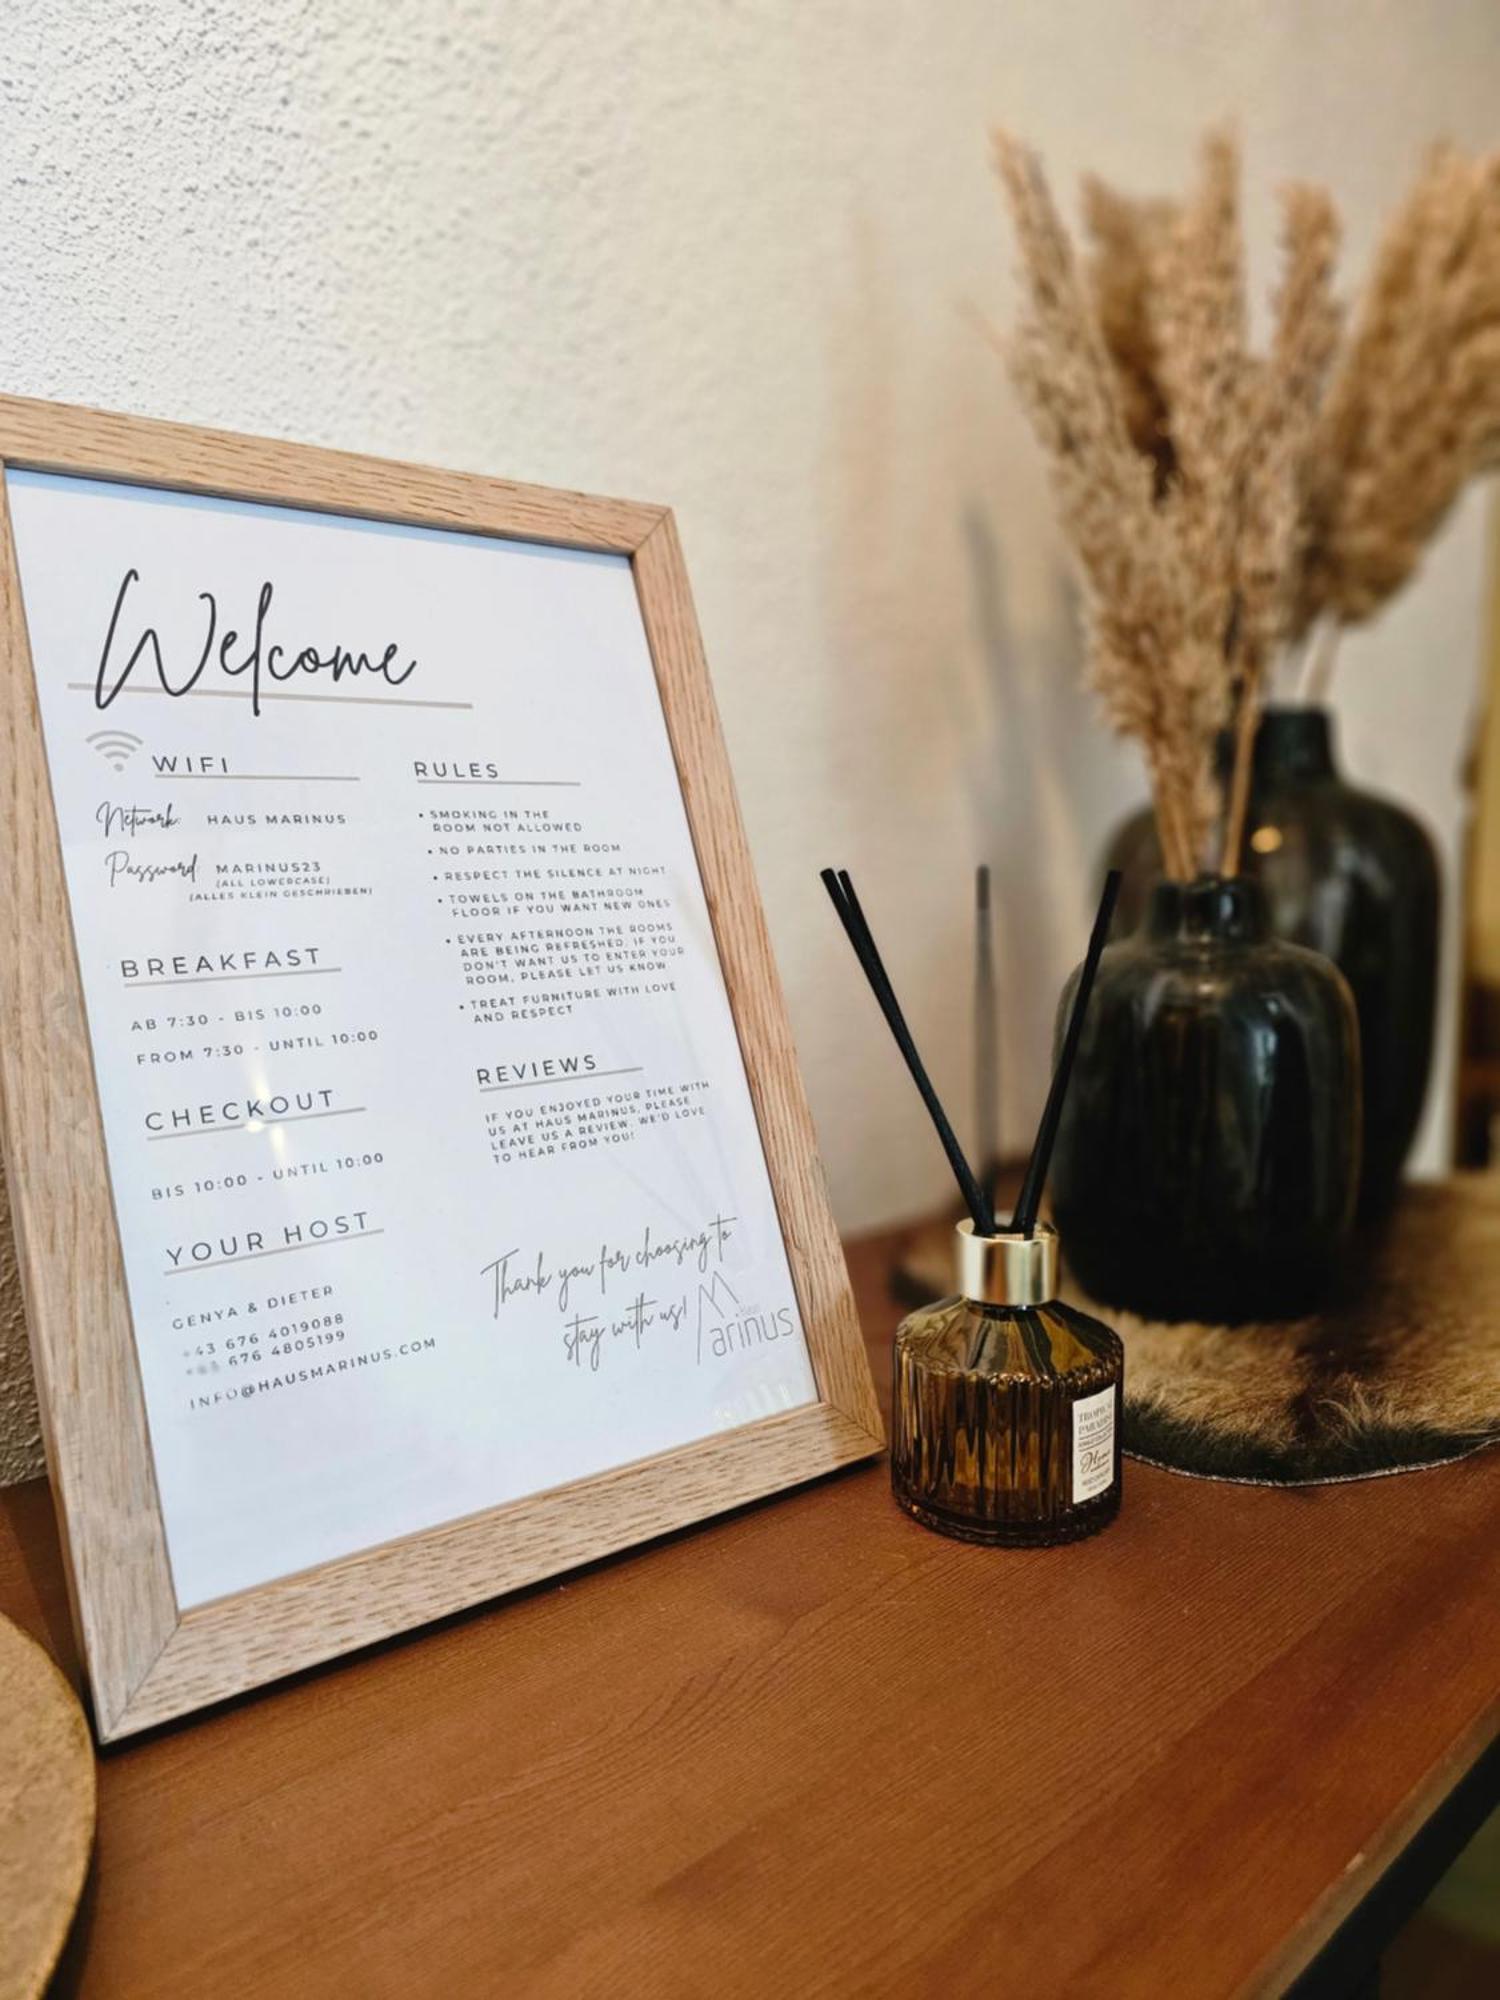 Welcome
WIFI
Network: HAUS MARINUS
Password: MARINUS23
(ALL LOWERCASE)
(ALLES KLEIN GESCHRIEBEN)
BREAKFAST
AB 7:30 - BIS 10:00
FROM 7:30 - UNTIL 10:00
CHECKOUT
BIS 10:00 - UNTIL 10:00
YOUR HOST
GENYA & DIETER
+43 676 4019088
676 4805199
INFO@HAUSMARINUS.COM
RULES
• SMOKING IN THE
ROOM NOT ALLOWED
• NO PARTIES IN THE ROOM
• RESPECT THE SILENCE AT NIGHT
• TOWELS ON THE BATHROOM
FLOOR IF YOU WANT NEW ONES
• EVERY AFTERNOON THE ROOMS
ARE BEING REFRESHED, IF YOU
DON'T WANT US TO ENTER YOUR
ROOM, PLEASE LET US KNOW
• TREAT FURNITURE WITH LOVE
AND RESPECT
REVIEWS
IF YOU ENJOYED YOUR TIME WITH
US AT HAUS MARINUS, PLEASE
LEAVE US A REVIEW. WE'D LOVE
TO HEAR FROM YOU!
Thank you for choosing to
stay with us!
Haus
Marinus
TROPICAL
PARADISE
Home